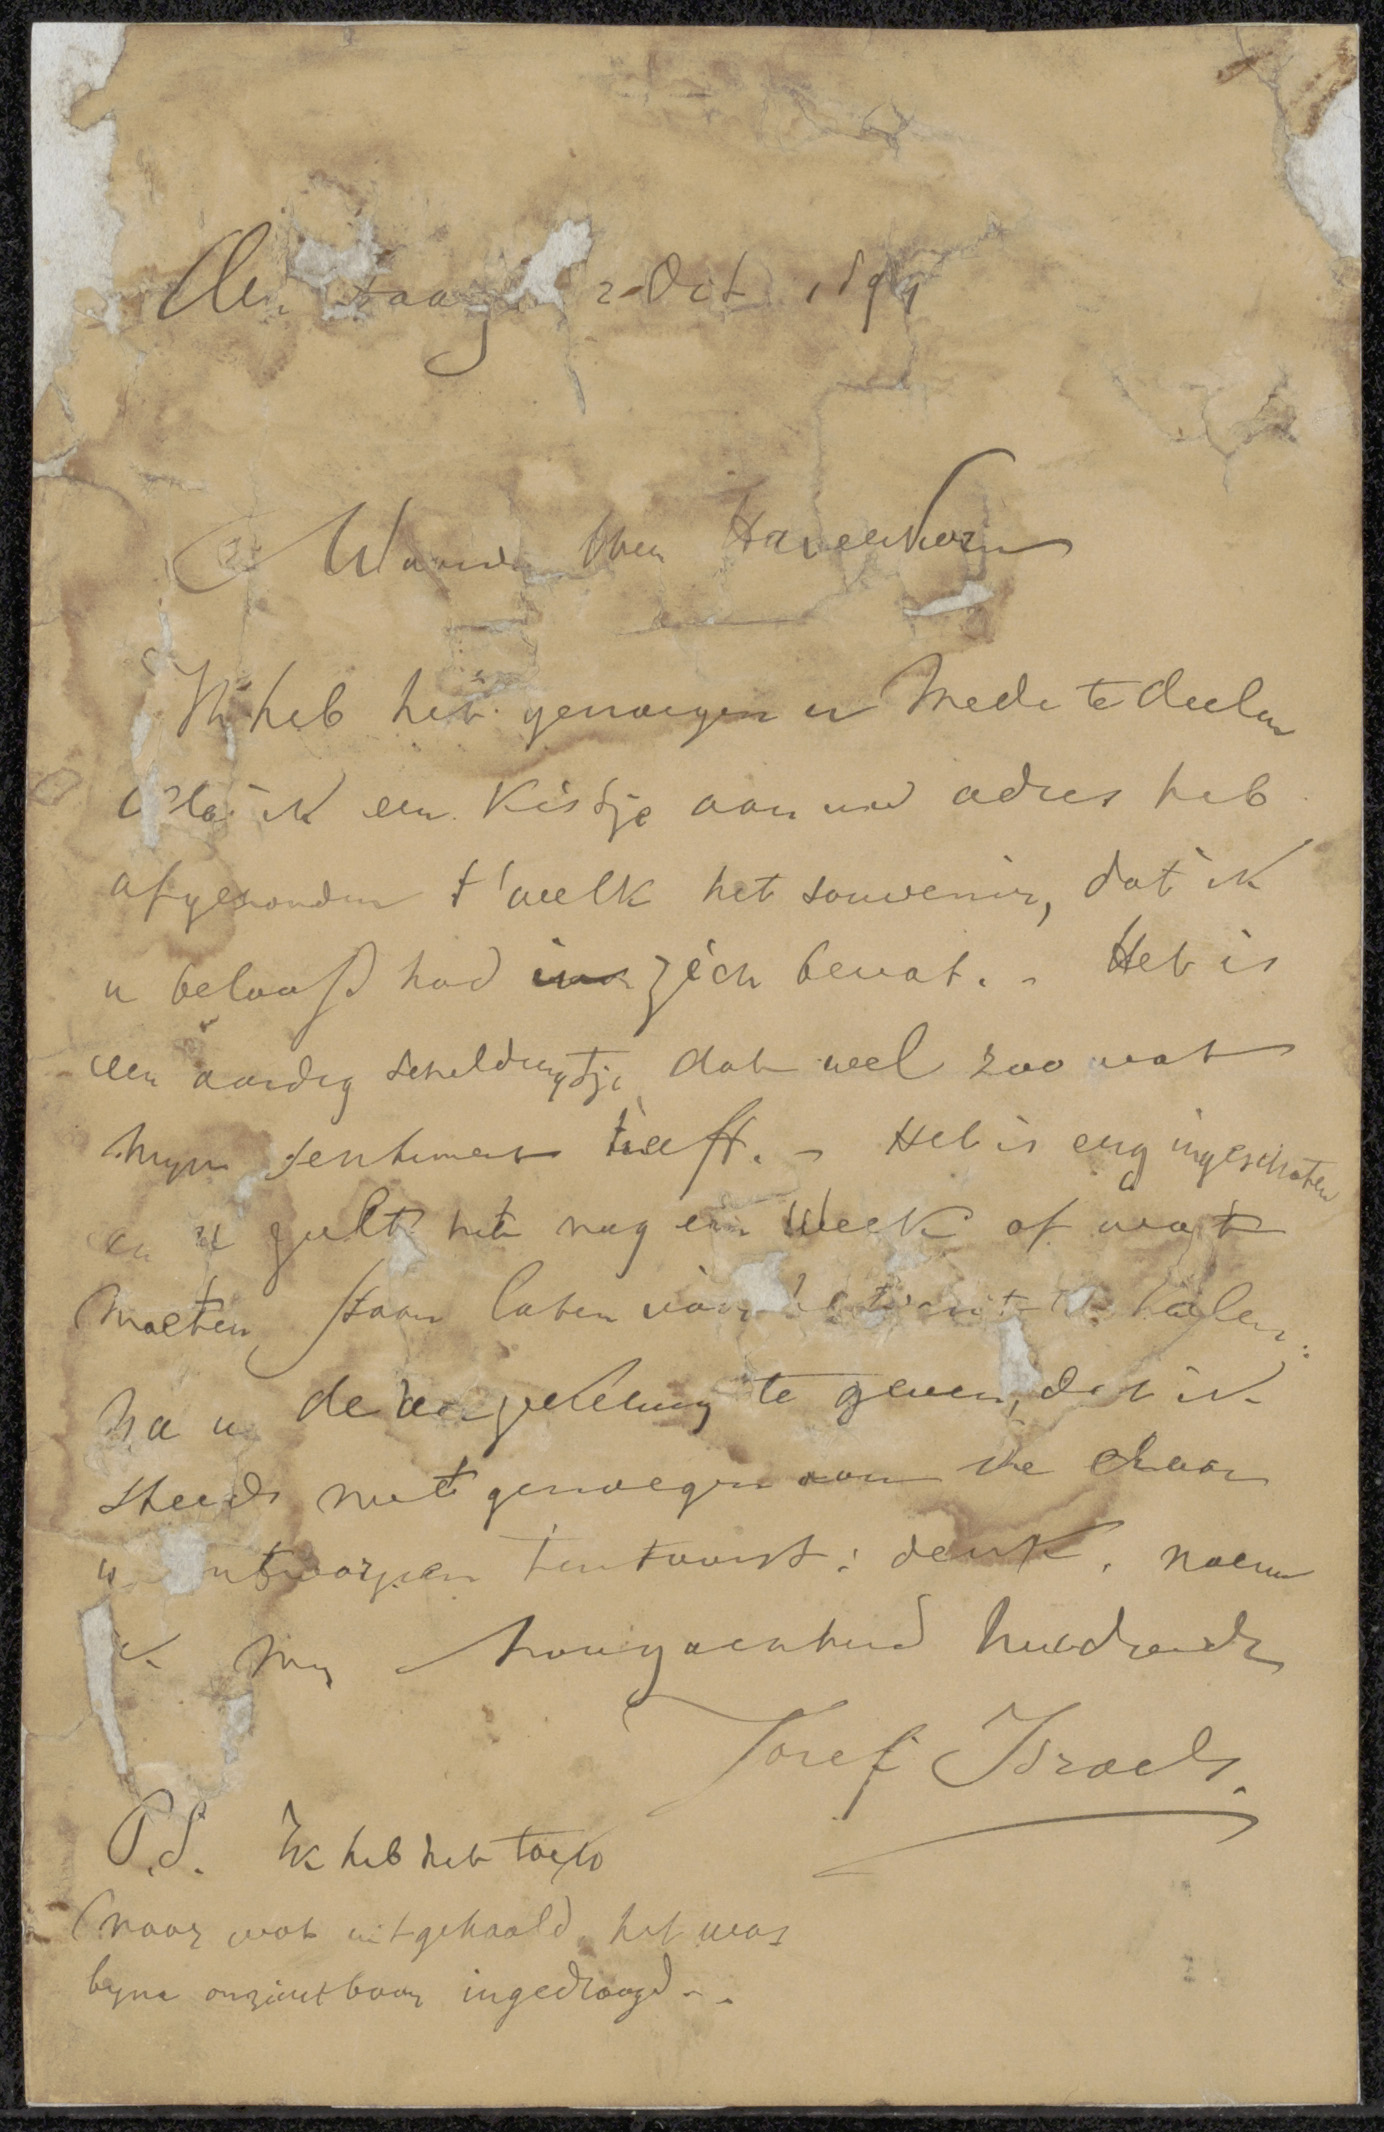 Den Haag 2 Oct 1899
Waarde Heer Haverkorn
Ik heb het genoegen u mede te deelen
dat ik een kistje aan uw adres heb
afgezonden t'welk het souvenir, dat ik
u beloofd had in zich bevat. - Het is
een aardig schilderytje dat wel zoo wat
myn sentiment treft. - Het is erg ingeschoten
en u zult het nog een week of wat
moeten staan laten voor het uit te halen.
Na u de verzekering te geven, dat ik
steeds met genoegen aan de door
u ontworpen tentoonst: denk, noem
ik my hoogachtend
Jozef Israels.
P.S. Ik heb het toch
maar wat uitgehaald het was
byna onzichtbaar ingedroogd - .